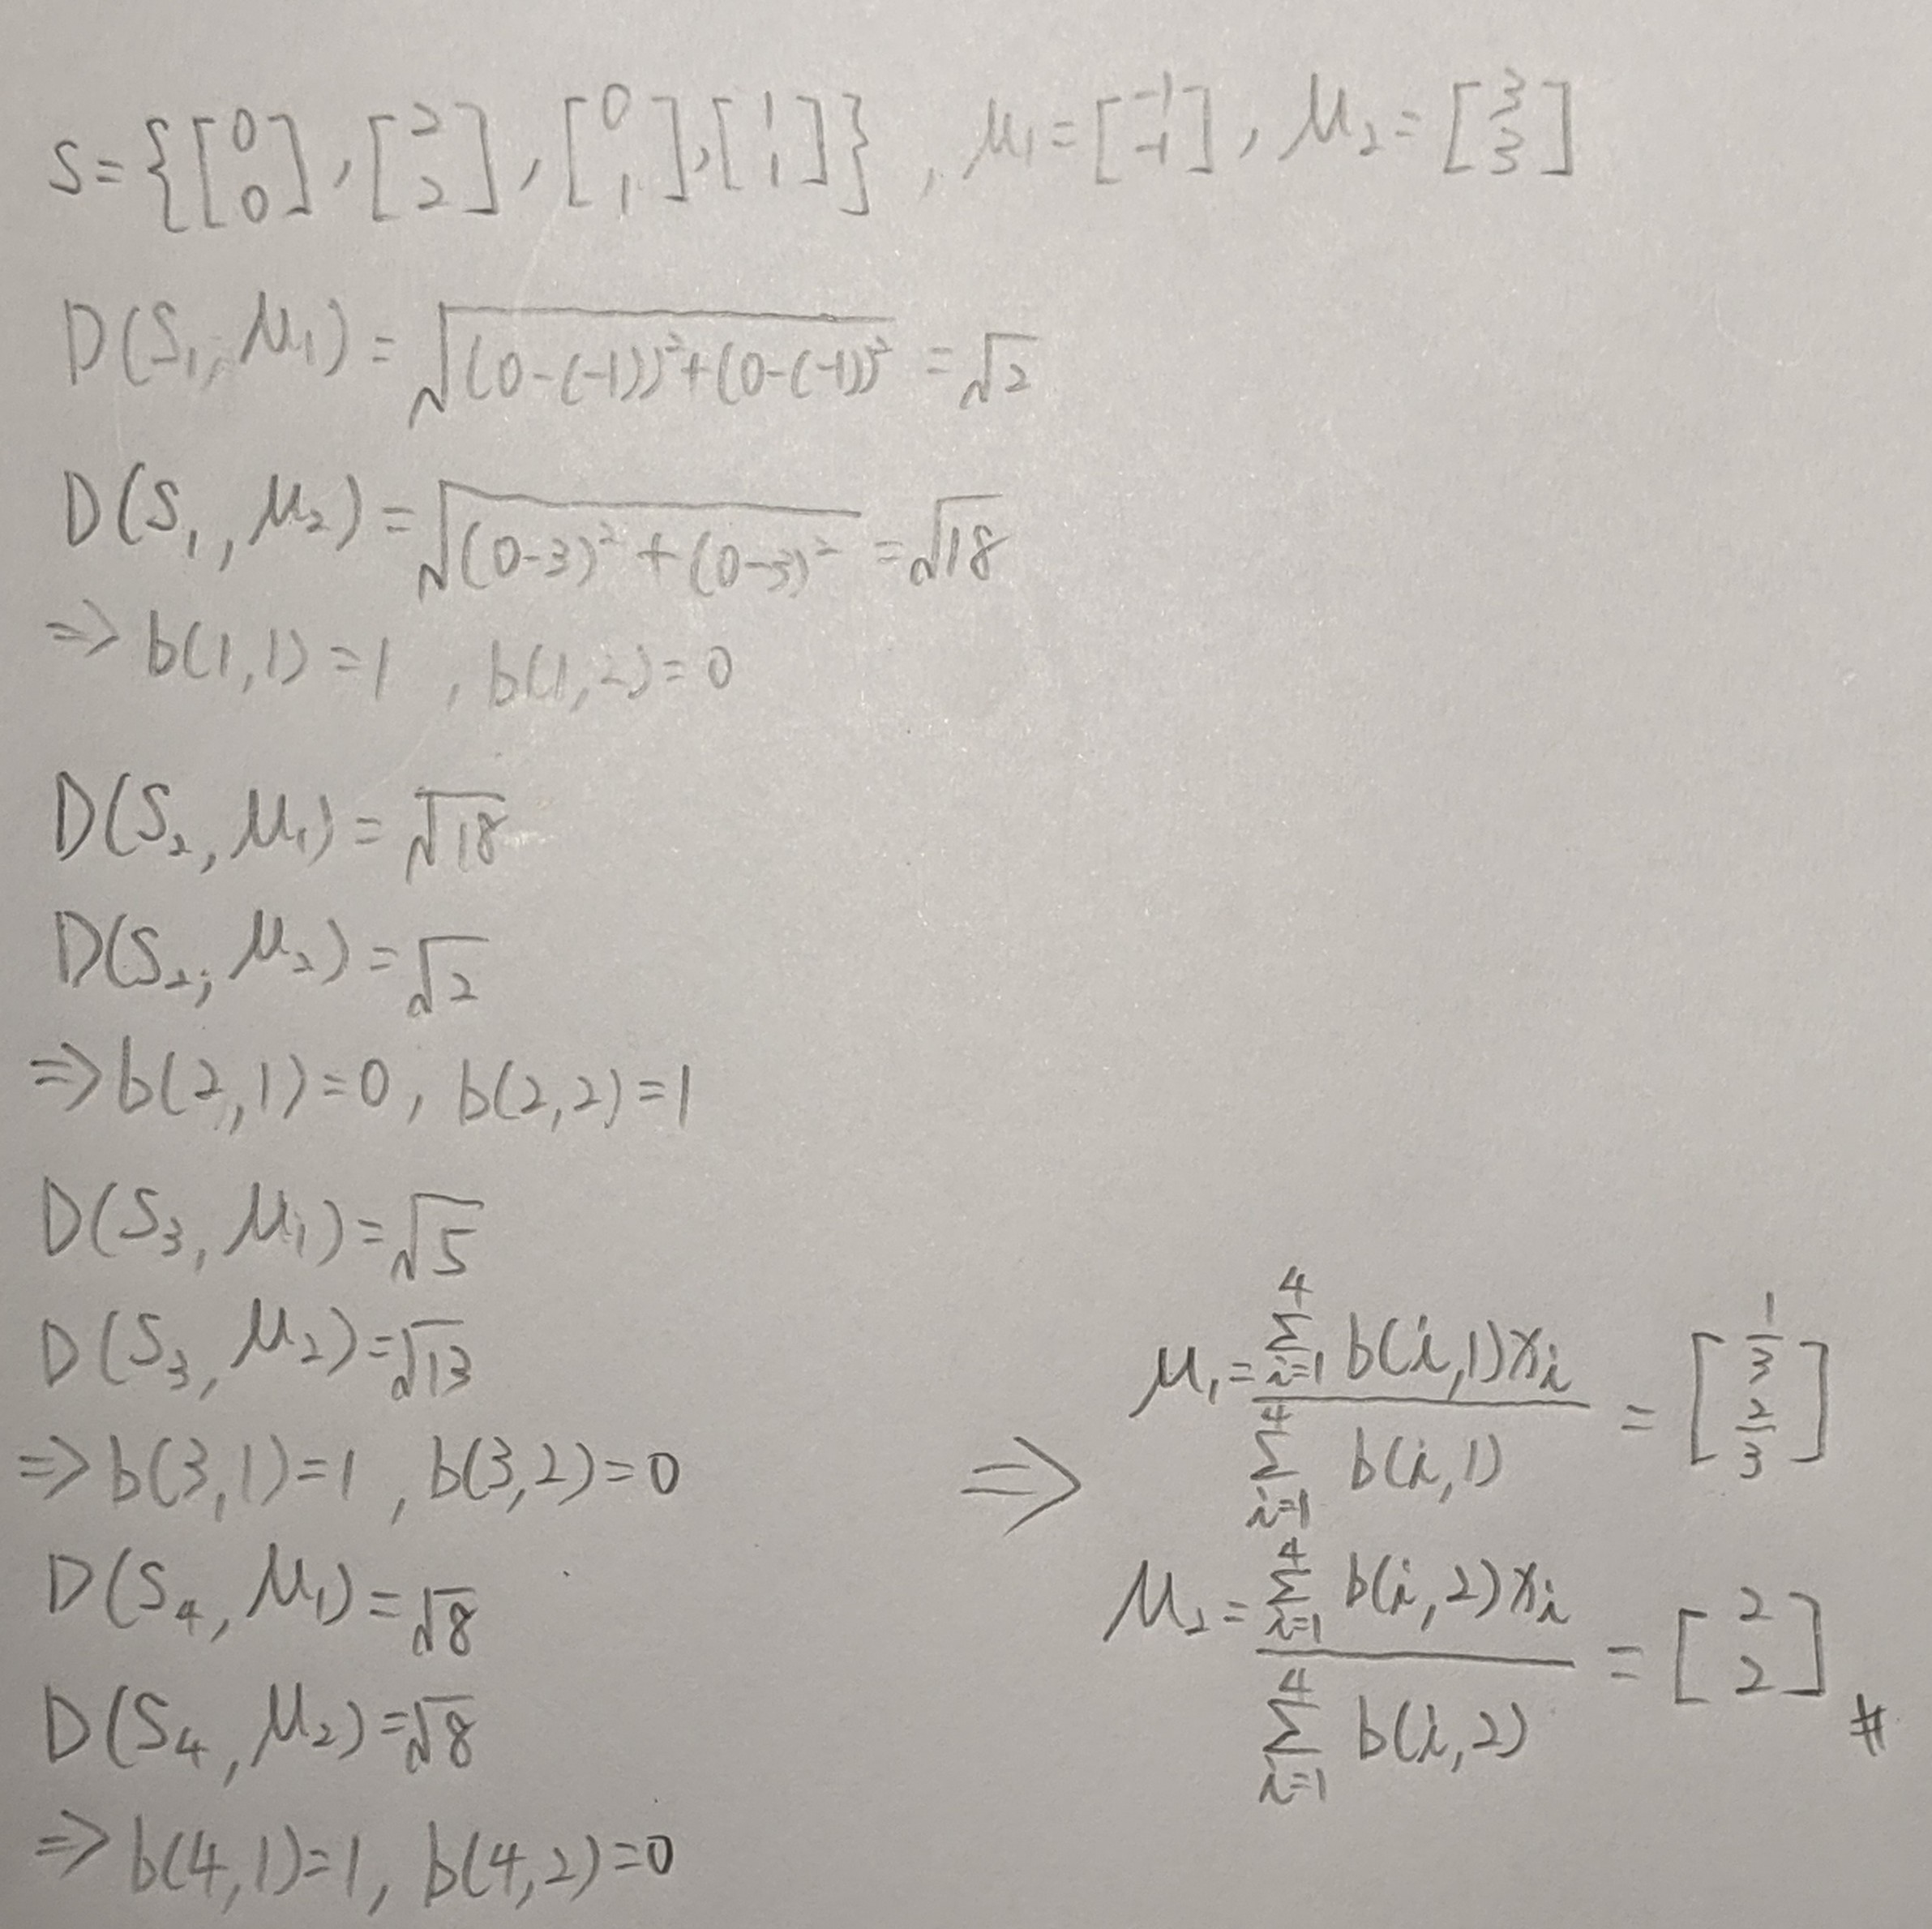 S={[0 0], [2 2], [0 1], [1 1]}, μ₁=[-1 -1], μ₂=[3 3]
D(S₁, μ₁)=√((0-(-1))²+(0-(-1))²) =√2
D(S₁, μ₂)=√((0-3)²+(0-3)²) =√18
⇒ b(1,1)=1, b(1,2)=0
D(S₂, μ₁)=√18
D(S₂, μ₂)=√2
⇒ b(2,1)=0, b(2,2)=1
D(S₃, μ₁)=√5
D(S₃, μ₂)=√13
⇒ b(3,1)=1, b(3,2)=0
D(S₄, μ₁)=√8
D(S₄, μ₂)=√8
⇒ b(4,1)=1, b(4,2)=0
⇒ μ₁= (∑_{i=1}^{4} b(i,1)xᵢ)/(∑_{i=1}^{4} b(i,1)) = [1/3 2/3]
μ₂= (∑_{i=1}^{4} b(i,2)xᵢ)/(∑_{i=1}^{4} b(i,2)) = [2 2] #